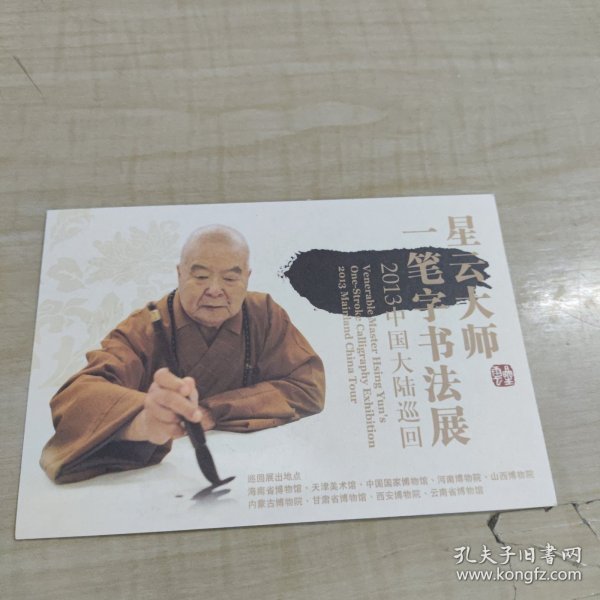 星云大师
一笔字书法展
2013中国大陆巡回
Venerable Master Hsing Yun's
One-Stroke Calligraphy Exhibition
2013 Mainland China Tour
巡回展出地点
海南省博物馆、天津美术馆、中国国家博物馆、河南博物院、山西博物院
内蒙古博物院、甘肃省博物馆、西安博物院、云南省博物馆
孔夫子旧书网
www.kongfz.com